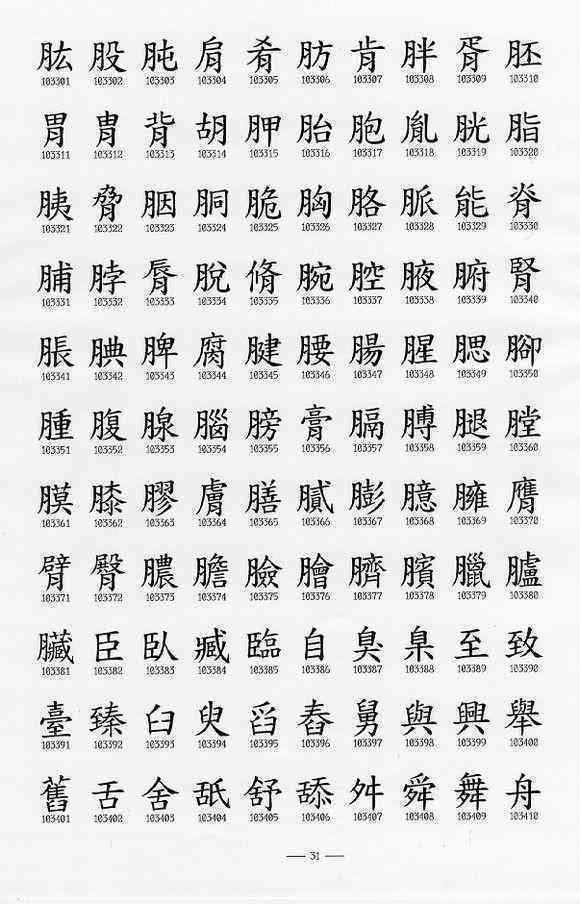 肱 股 肫 肩 肴 肪 肯 胖 胥 胚
103301 103302 103303 103304 103305 103306 103307 103308 103309 103310
胃 冑 背 胡 胛 胎 胞 胤 胱 脂
103311 103312 103313 103314 103315 103316 103317 103318 103319 103320
胰 脅 胭 胴 脆 胸 胳 脈 能 脊
103321 103322 103323 103324 103325 103326 103327 103328 103329 103330
脯 脖 脣 脫 脩 腕 腔 腋 腑 腎
103331 103332 103333 103334 103335 103336 103337 103338 103339 103340
脹 腆 脾 腐 腱 腰 腸 腥 腮 腳
103341 103342 103343 103344 103345 103346 103347 103348 103349 103350
腫 腹 腺 腦 膀 膏 膈 膊 腿 膛
103351 103352 103353 103354 103355 103356 103357 103358 103359 103360
膜 膝 膠 膚 膳 膩 膨 臆 臃 膺
103361 103362 103363 103364 103365 103366 103367 103368 103369 103370
臂 臀 膿 膽 臉 膾 臍 臏 臘 臚
103371 103372 103373 103374 103375 103376 103377 103378 103379 103380
臟 臣 臥 臧 臨 自 臭 臬 至 致
103381 103382 103383 103384 103385 103386 103387 103388 103389 103390
臺 臻 臼 臾 舀 舂 舅 與 興 舉
103391 103392 103393 103394 103395 103396 103397 103398 103399 103400
舊 舌 舍 舐 舒 舔 舛 舜 舞 舟
103401 103402 103403 103404 103405 103406 103407 103408 103409 103410
— 31 —